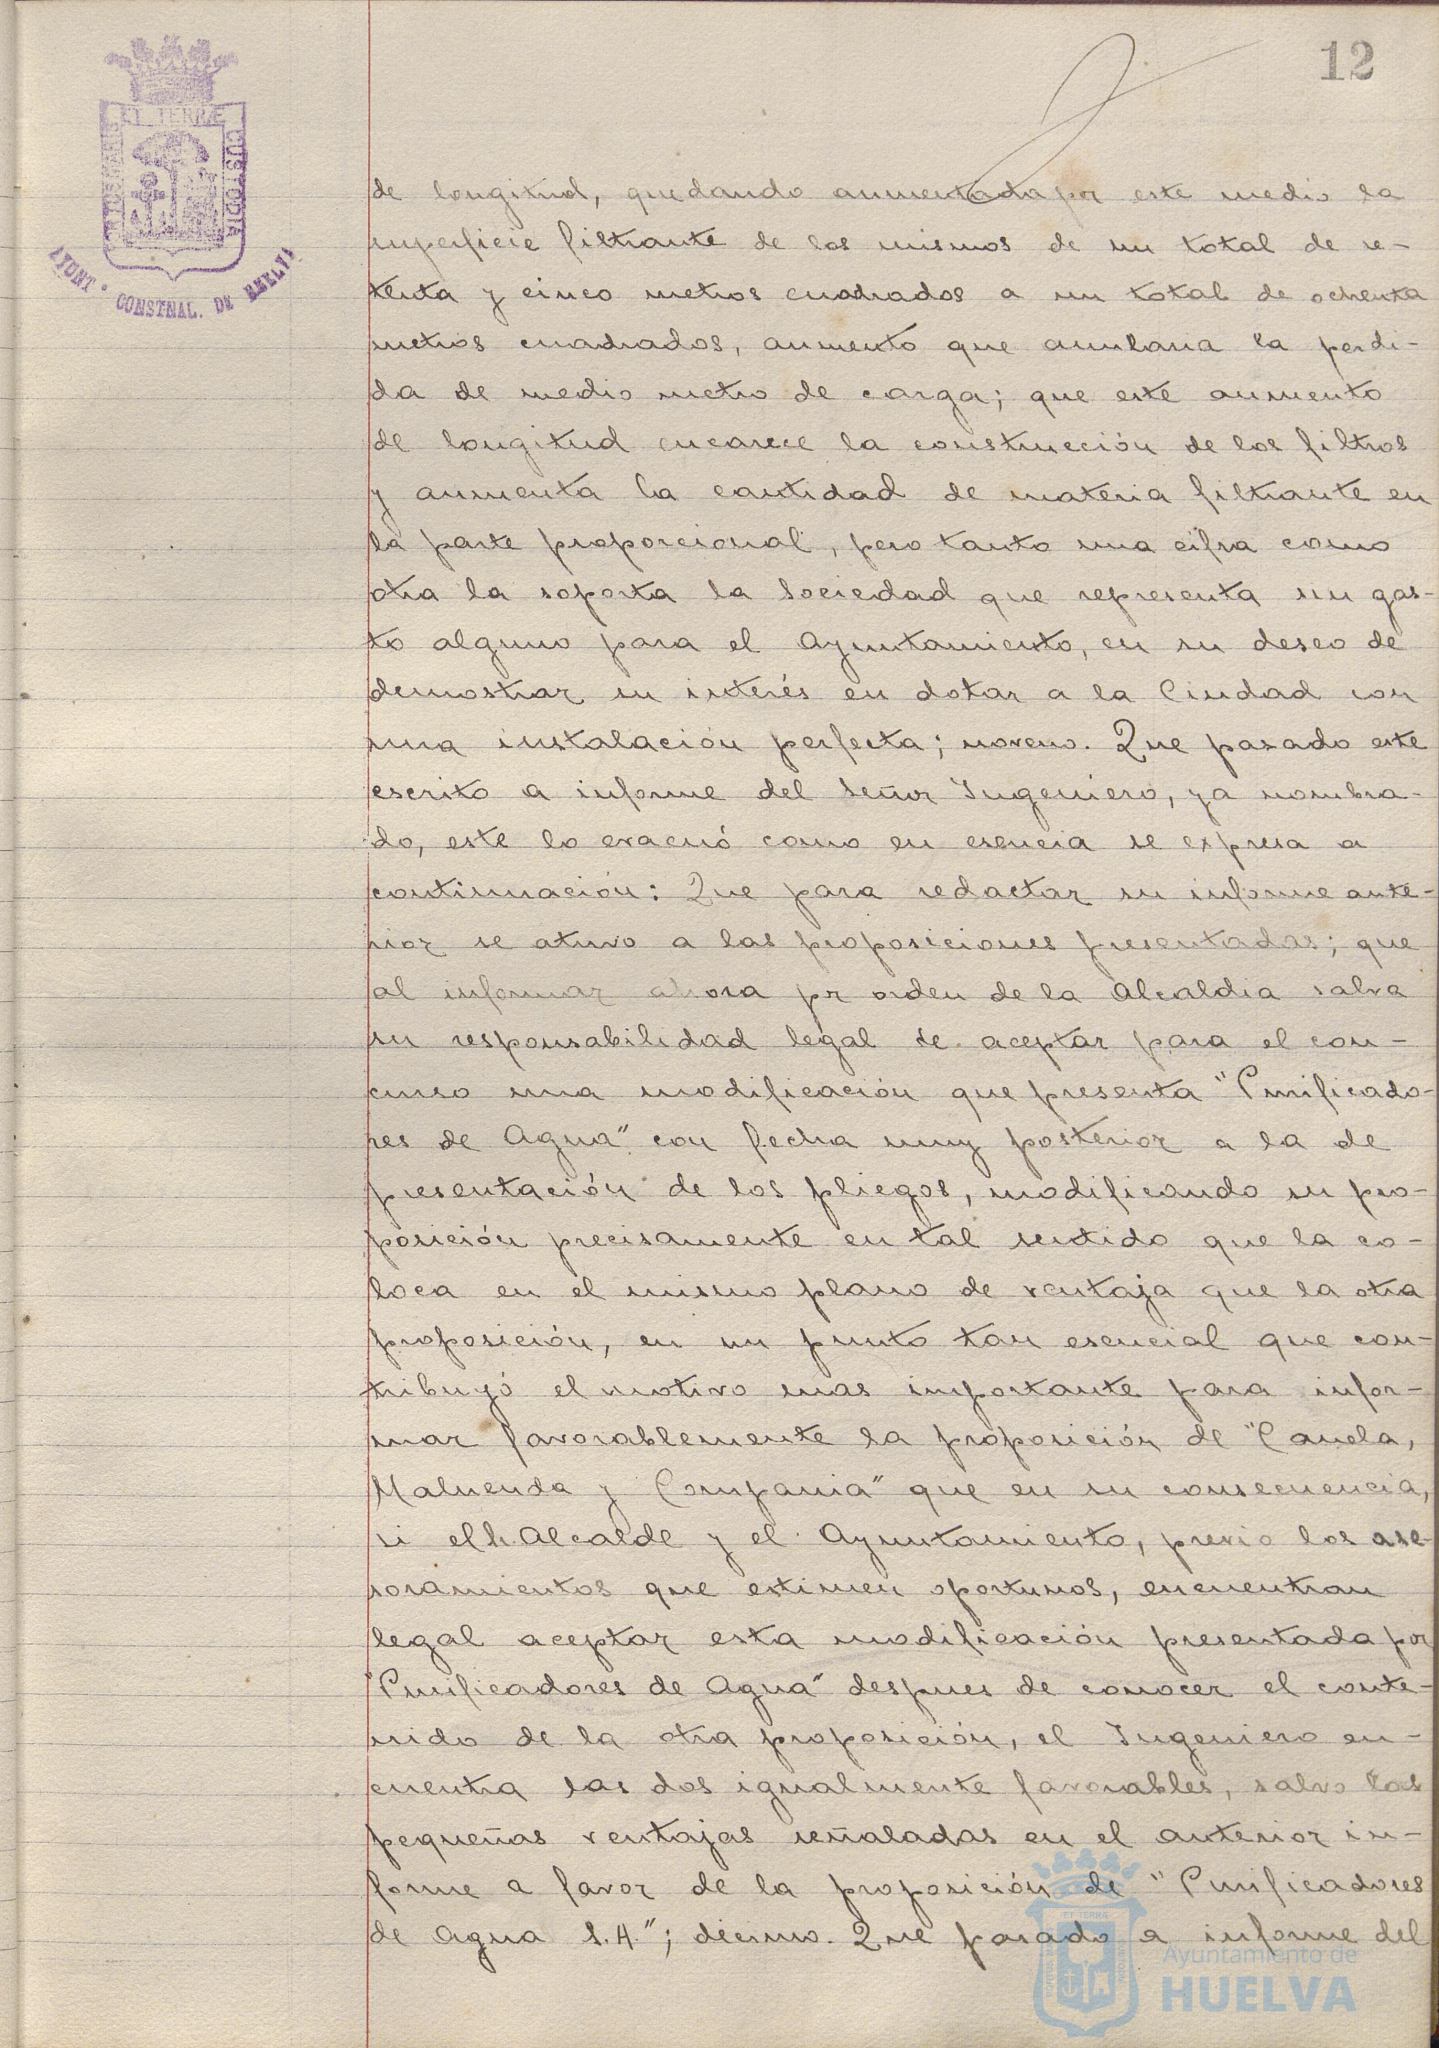 12
PORTUS MARIS
ET TERRÆ
CUSTODIA
AYUNT. CONSTNAL. DE HUELVA
de longitud, quedando aumentada por este medio la
superficie filtrante de los mismos de un total de se-
tenta y cinco metros cuadrados a un total de ochenta
metros cuadrados, aumento que anularia la perdi-
da de medio metro de carga; que este aumento
de longitud encarece la construcción de los filtros
y aumenta la cantidad de materia filtrante en
la parte proporcional, pero tanto una cifra como
otra la soporta la Sociedad que representa sin gas-
to alguno para el Ayuntamiento, en su deseo de
demostrar su interés en dotar a la Ciudad con
una instalación perfecta; noveno. Que pasado este
escrito a informe del Señor Ingeniero, ya nombra-
do, este lo evacuó como en esencia se expresa a
continuación: Que para redactar su informe ante-
rior se atuvo a las proposiciones presentadas; que
al informar ahora pr orden de la Alcaldia salva
su responsabilidad legal de aceptar para el con-
curso una modificación que presenta "Purificado-
res de Agua" con fecha muy posterior a la de
presentación de los pliegos, modificando su pro-
posición precisamente en tal sentido que la co-
loca en el mismo plano de ventaja que la otra
proposición, en un punto tan esencial que con-
tribuyó el motivo mas importante para infor-
mar favorablemente la proposición de "Canela,
Maluenda y Compania" que en su consecuencia,
si el S. Alcalde y el Ayuntamiento, previo los ase-
soramientos que estimen oportunos, encuentran
legal aceptar esta modificación presentada por
"Purificadores de Agua" despues de conocer el conte-
nido de la otra proposición, el Ingeniero en-
cuentra las dos igualmente favorables, salvo las
pequeñas ventajas señaladas en el anterior in-
forme a favor de la proposición de "Purificadores
de Agua S.A."; décimo. Que pasado a informe del
Ayuntamiento de
HUELVA